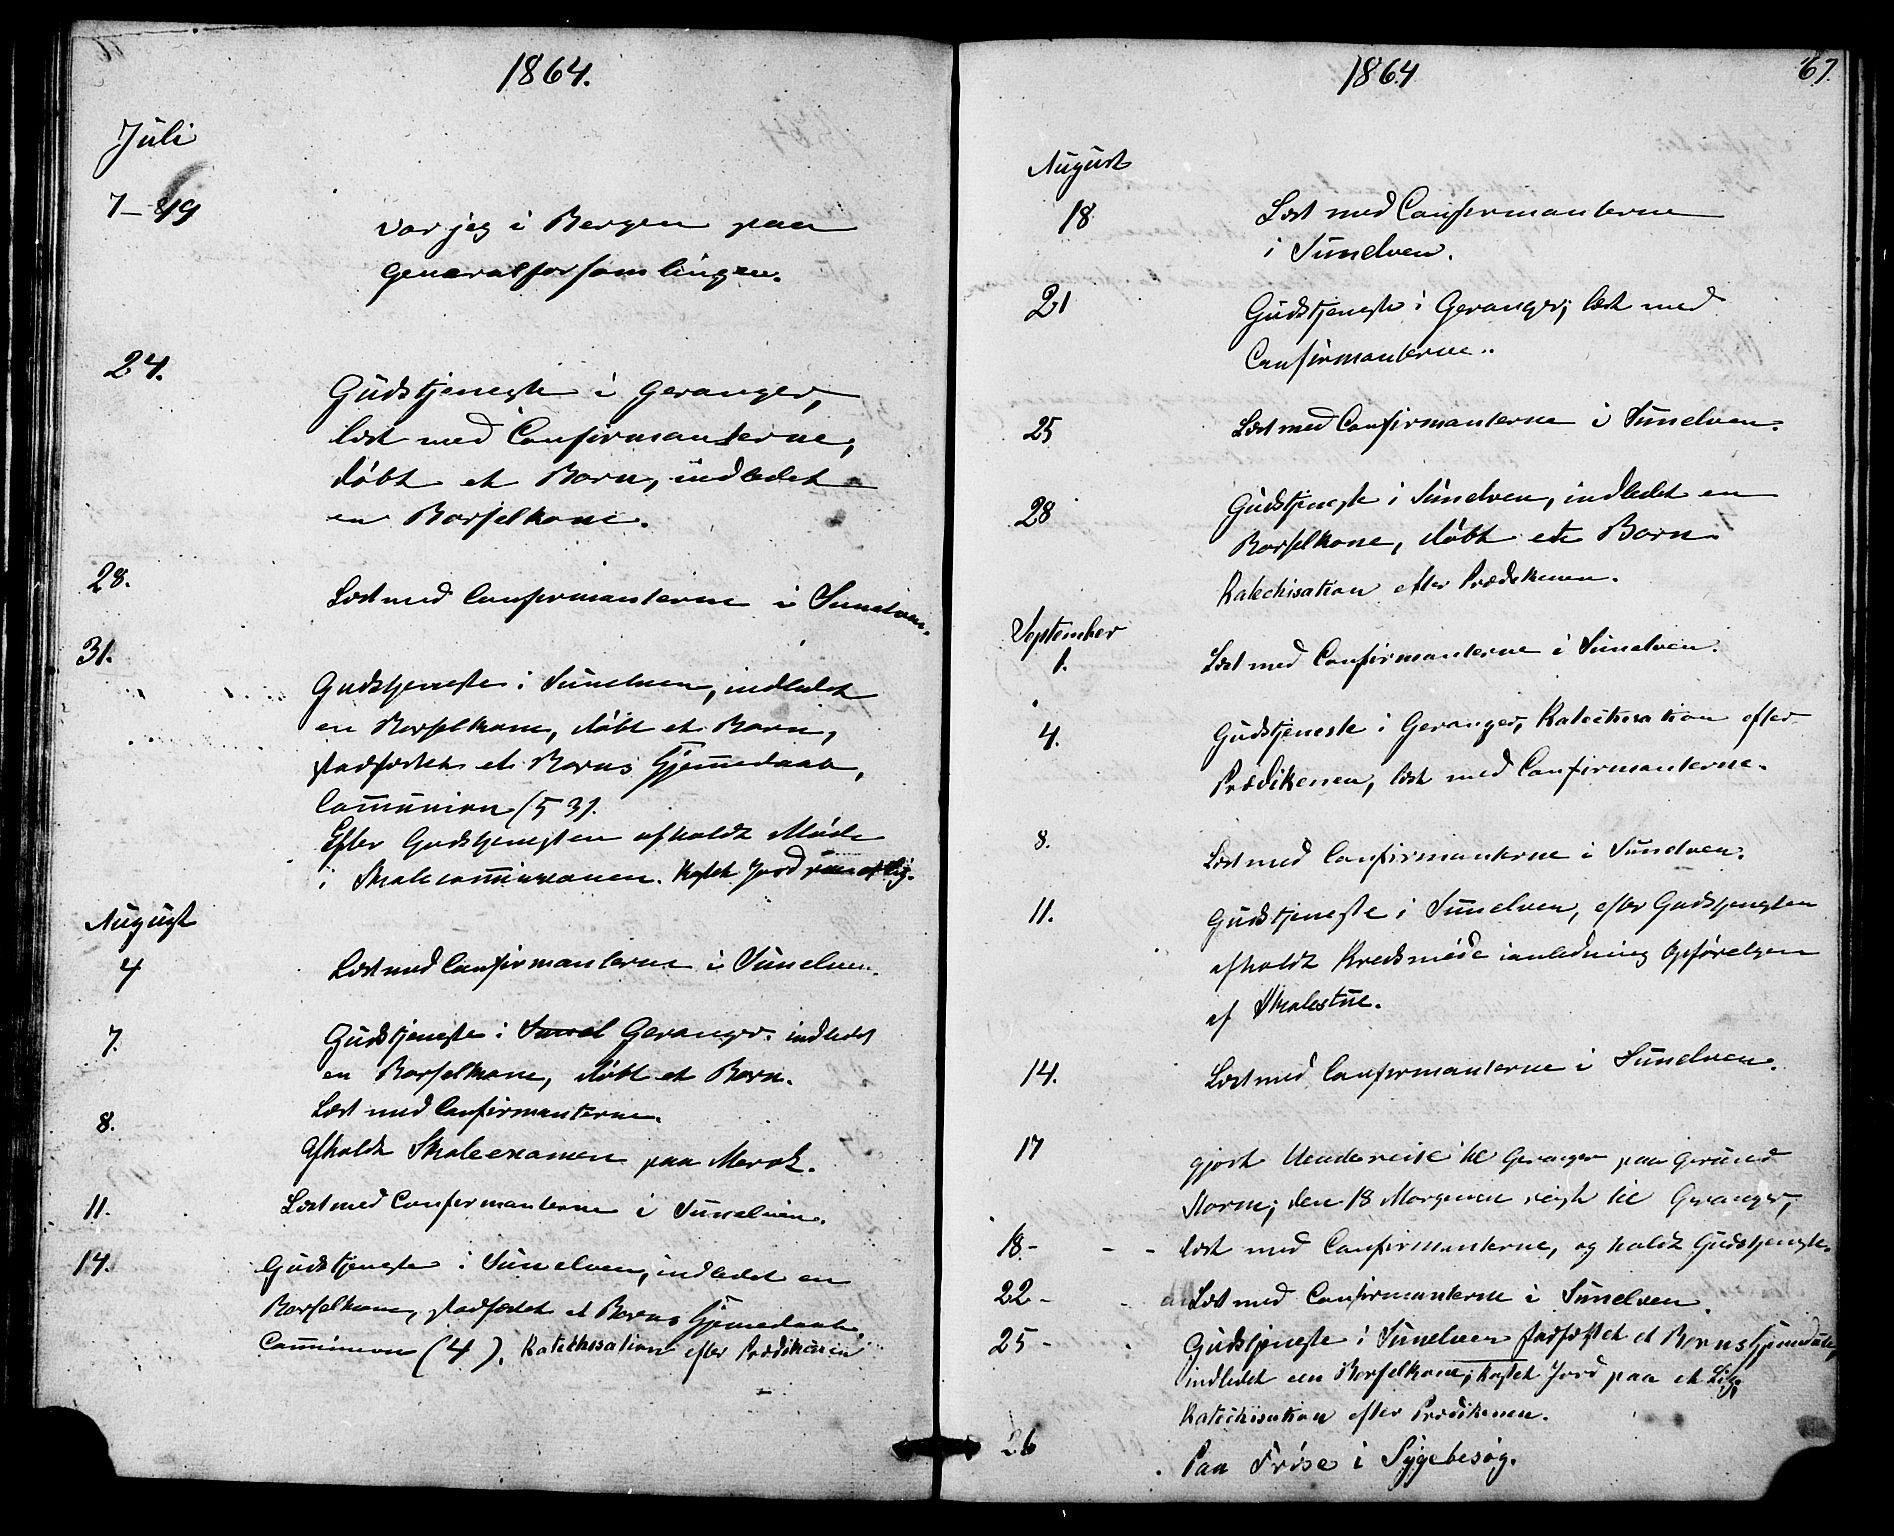 1864.
Juli
7-19
var jeg i Bergen paa
Generalforsamlingen.
24.
Gudstjeneste i Geranger,
læst med Confirmanterne,
døbt et Barn, indledet
en Barselkone.
28.
Læst med Confirmanterne i Sunelven.
31.
Gudstjeneste i Sunelven, indledet
en Barselkone, døbt et Barn,
stadfæstet et Barns Hjemmedaab,
Communion (53).
Efter Gudstjenesten afholdt Møde
i Skolecommissionen. Kastet Jord paa et Lig.
August
4
Læst med Confirmanterne i Sunelven.
7.
Gudstjeneste i Sunel Geranger. indledet
en Barselkone, døbt et Barn.
Læst med Confirmanterne.
8.
Afholdt Skoleexamen paa Merok.
11.
Læst med Confirmanterne i Sunelven.
14.
Gudstjeneste i Sunelven, indledet en
Barselkone, stadfæstet et Barns Hjemmedaab.
Communion (4), Katechisation efter Prædikenen
1864
67.
August
18
Læst med Confirmanterne
i Sunelven.
21
Gudstjeneste i Geranger, læst med
Confirmanterne.
25
Læst med Confirmanterne i Sunelven.
28
Gudstjeneste i Sunelven, indledet en
Barselkone, døbt et Barn.
Katechisation efter Prædikenen.
September
1.
Læst med Confirmanterne i Sunelven.
4.
Gudstjeneste i Geranger, Katechisation efter
Prædikenen, læst med Confirmanterne.
8.
Læst med Confirmanterne i Sunelven.
11.
Gudstjeneste i Sunelven, efter Gudstjenesten
afholdt Kredsmøde i anledning Opførelsen
af Skolestue.
14.
Læst med Confirmanterne i Sunelven.
17
gjort Vendereise til Geranger paa Grund
Storm; den 18 Morgenen reist til Geranger,
18 - - - læst med Confirmanterne, og holdt Gudstjeneste.
22 - - Læst med Confirmanterne i Sunelven.
25 - Gudstjeneste i Sunelven stadfæstet et Barns Hjemmedaab,
indledet en Barselkone, kastet Jord paa et Lig,
Katechisation efter Prædikenen.
26
Paa Frøse i Sygebesøg.